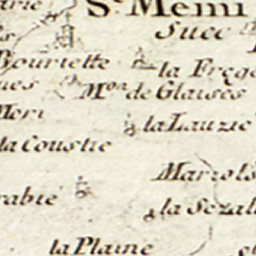 St Memi
Succ
Bouriette
la Frege
Mon de Glaises
Meri
la Lauzie
la Coustie
Mariols
rabie
la Sezal
la Plaine